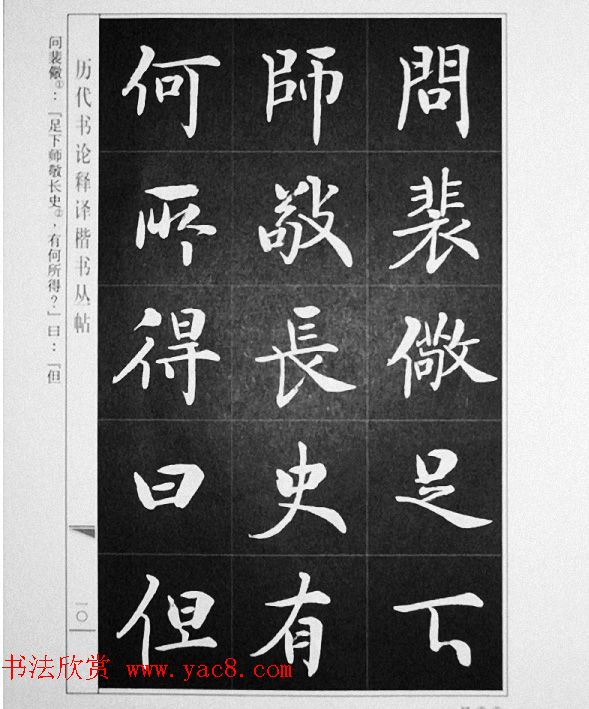 問裴儆足下
師敬長史有
何所得曰但
历代书论释译楷书丛帖
一〇
问裴儆①：「足下师敬长史②，有何所得？」曰：「但
书法欣赏 www.yac8.com